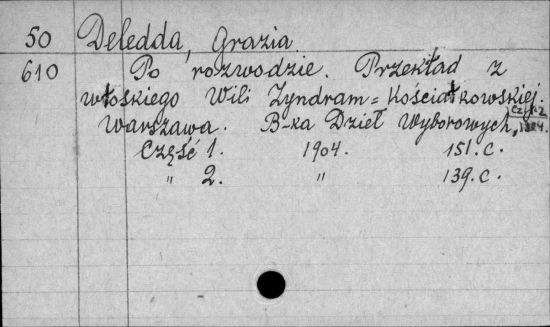 50 Deledda, Grazia.
610 Po rozwodzie. Przekład z
włoskiego Wili Zyndram=Kościałkowskiej.
Warszawa. B-ka Dzieł Wyborowych,
Część 1. 1904. 151.c.
" 2. " 139.c.